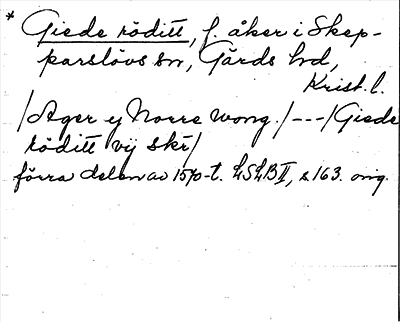 * Giede röditt, f. åker i Skep-
parslövs sn, Gärds hd,
Krist. l.
/Ager y Norre wong./---/Giede
röditt vij skr/
förra delen av 1570-t. LSLB II, s 163. orig.